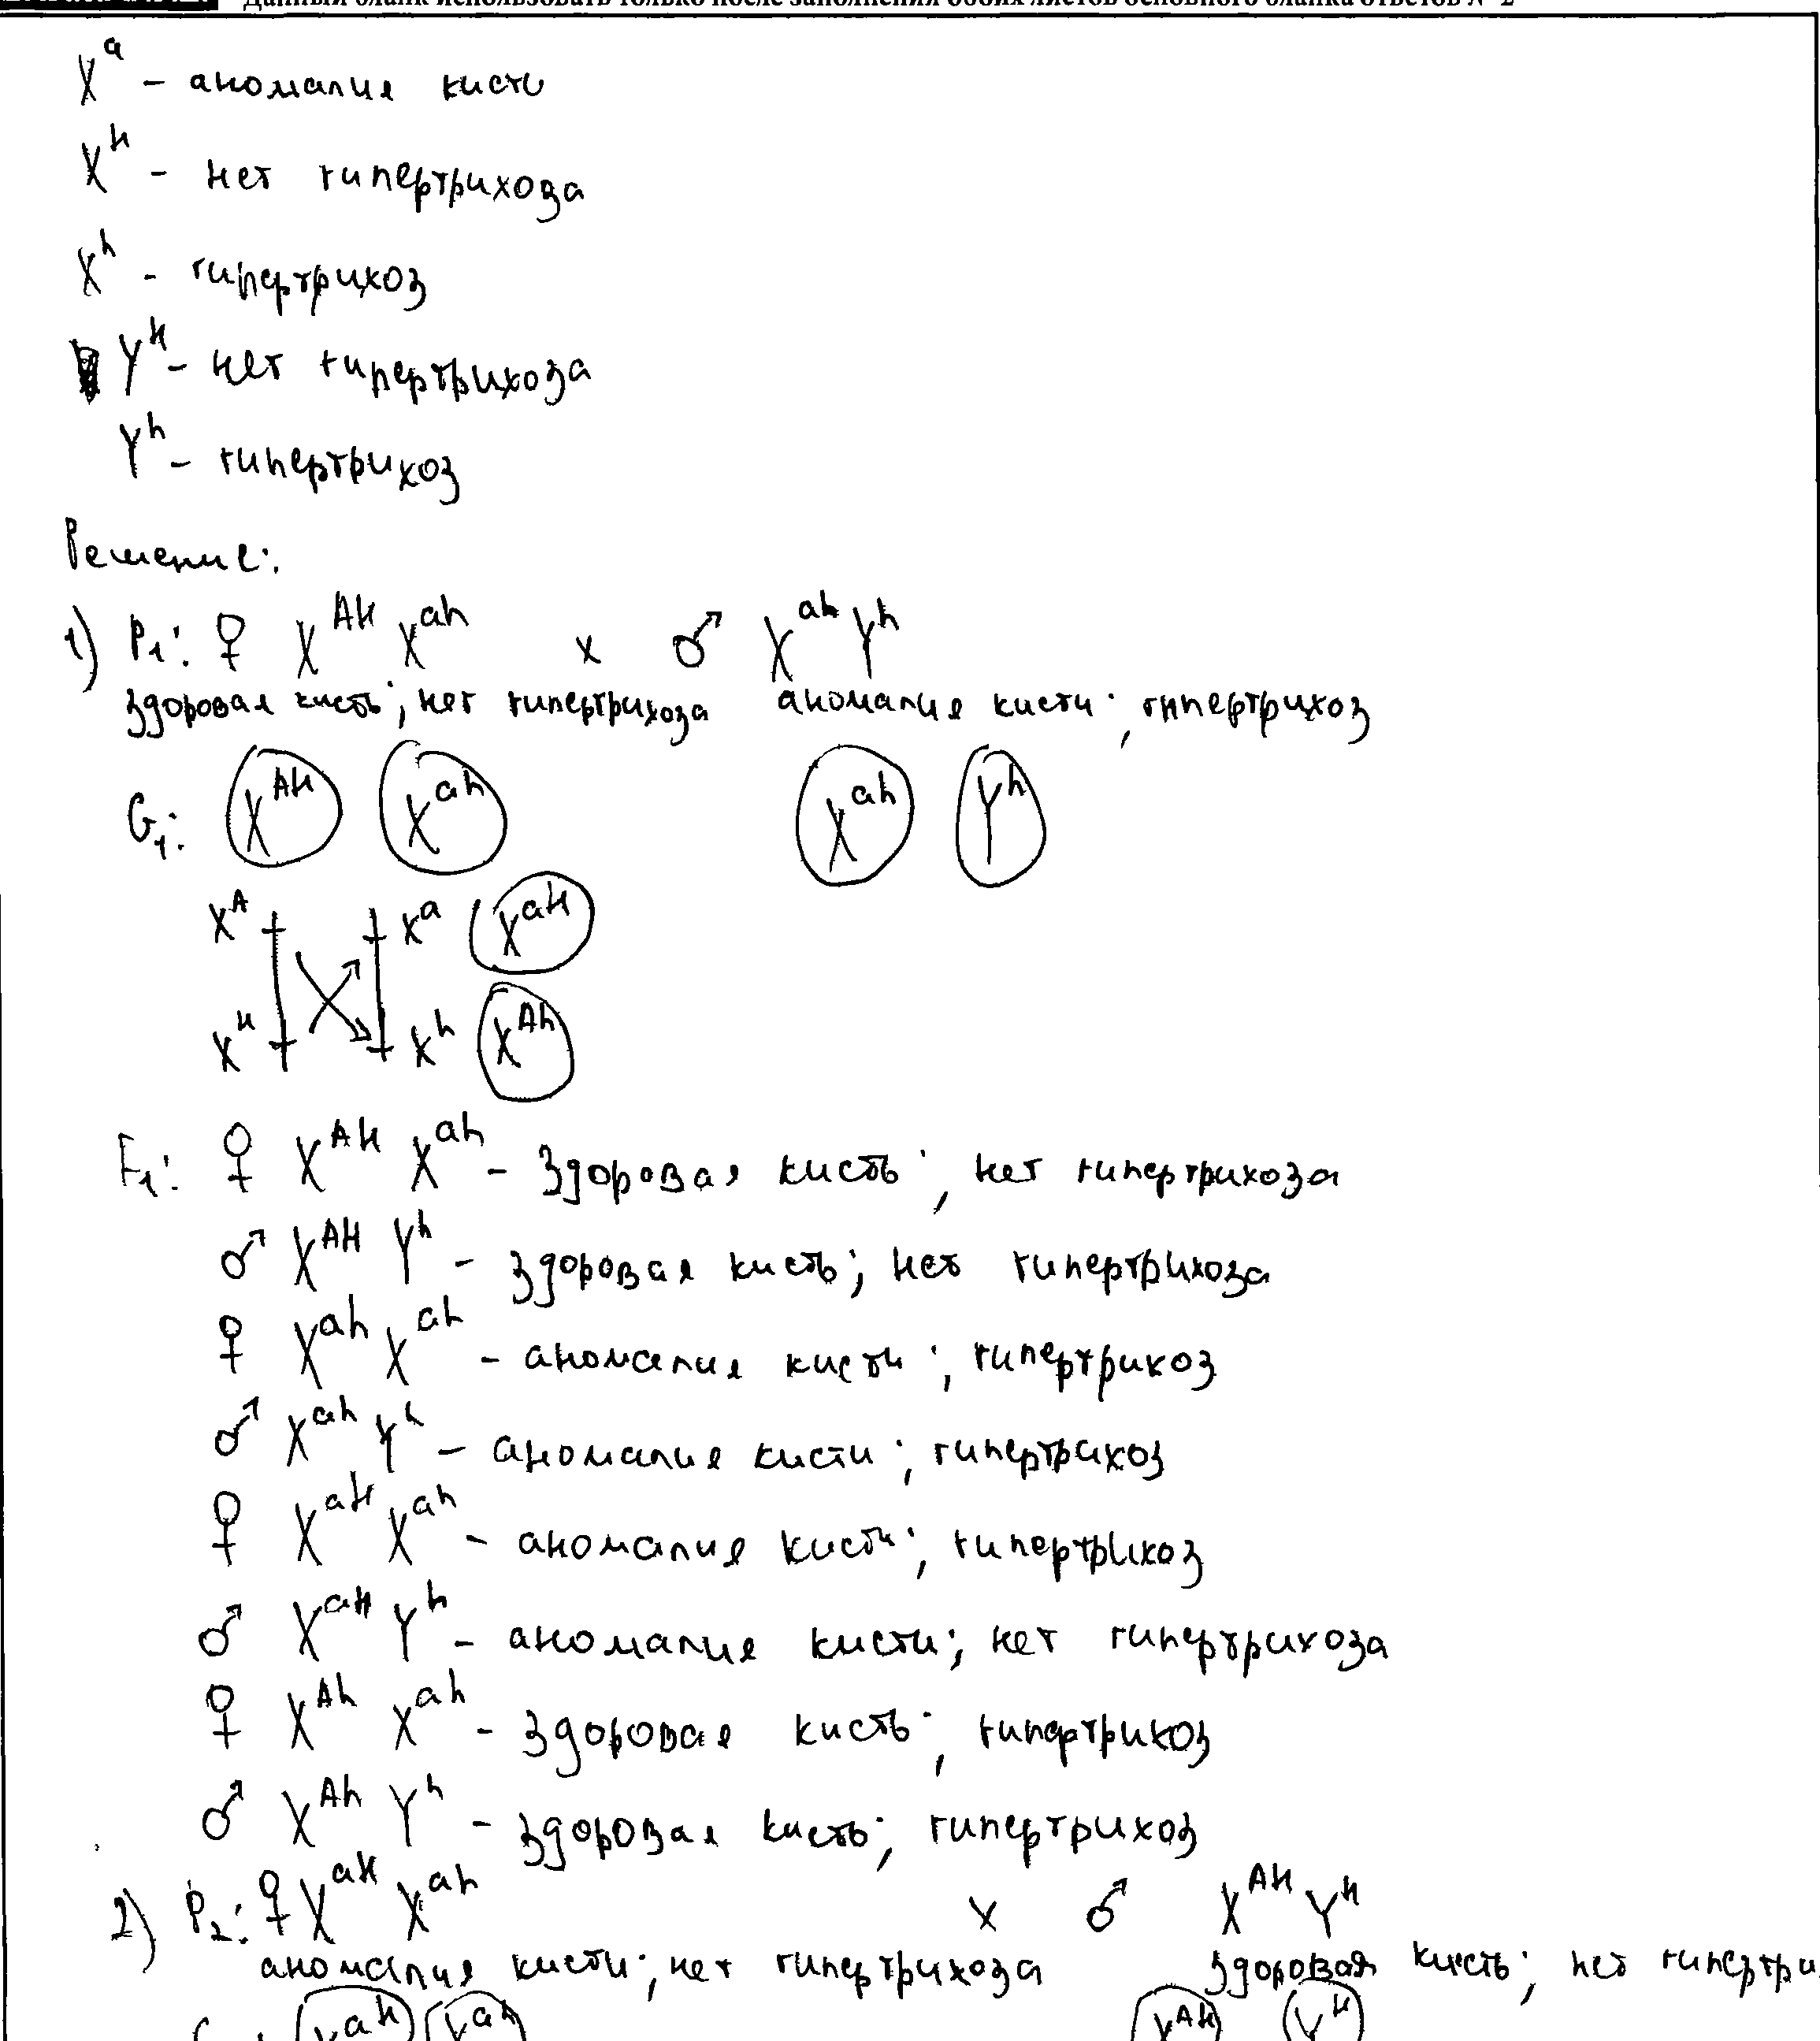 Данный бланк использовать только после заполнения обоих листов основного бланка ответов № 2
X^a – аномалия кисти
X^H – нет гипертрихоза
X^h – гипертрихоз
Y^H – нет гипертрихоза
Y^h – гипертрихоз
Решение:
1) P₁: ♀ X^AH X^ah x ♂ X^ah Y^h
здоровая кисть; нет гипертрихоза аномалия кисти; гипертрихоз
G₁: X^AH X^ah X^ah Y^h
X^A X^a X^aH
X^H X^h X^Ah
F₁: ♀ X^AH X^ah – здоровая кисть; нет гипертрихоза
♂ X^AH Y^h – здоровая кисть; нет гипертрихоза
♀ X^ah X^ah – аномалия кисти; гипертрихоз
♂ X^ah Y^h – аномалия кисти; гипертрихоз
♀ X^aH X^ah – аномалия кисти; гипертрихоз
♂ X^aH Y^h – аномалия кисти; нет гипертрихоза
♀ X^Ah X^ah – здоровая кисть; гипертрихоз
♂ X^Ah Y^h – здоровая кисть; гипертрихоз
2) P₂: ♀ X^aH X^ah x ♂ X^AH Y^H
аномалия кисти; нет гипертрихоза здоровая кисть; нет гипертри
X^aH X^ah X^AH Y^H